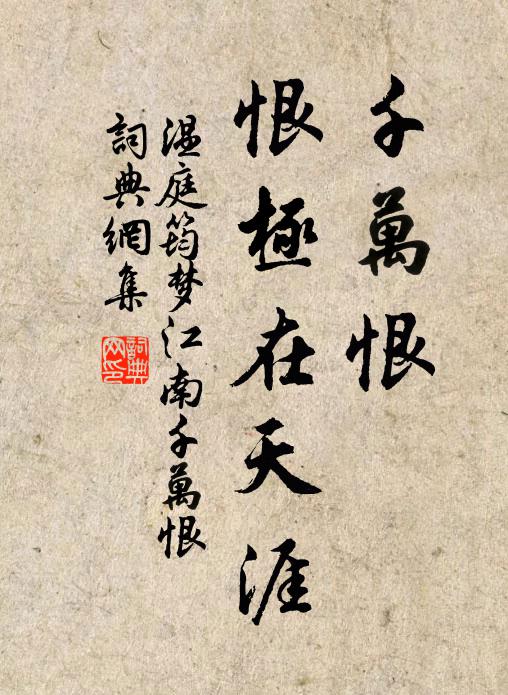 千萬恨
恨極在天涯
溫庭筠梦江南千萬恨
詞典網集
詞典
网印